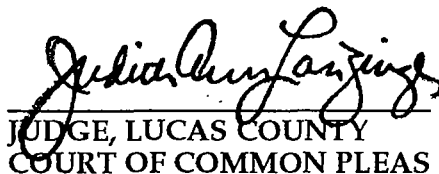 Judith Ann Lanzinger
JUDGE, LUCAS COUNTY
COURT OF COMMON PLEAS